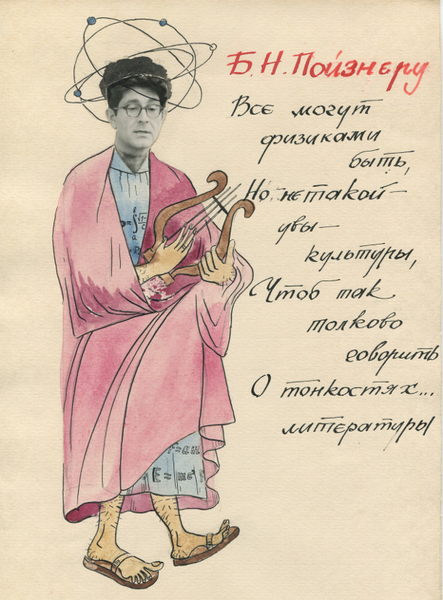 Б. Н. Пойзнеру
Все могут
физиками
быть,
Но, не такой –
увы –
культуры,
Чтоб так
толково
говорить
О тонкостях...
литературы
E = mc²